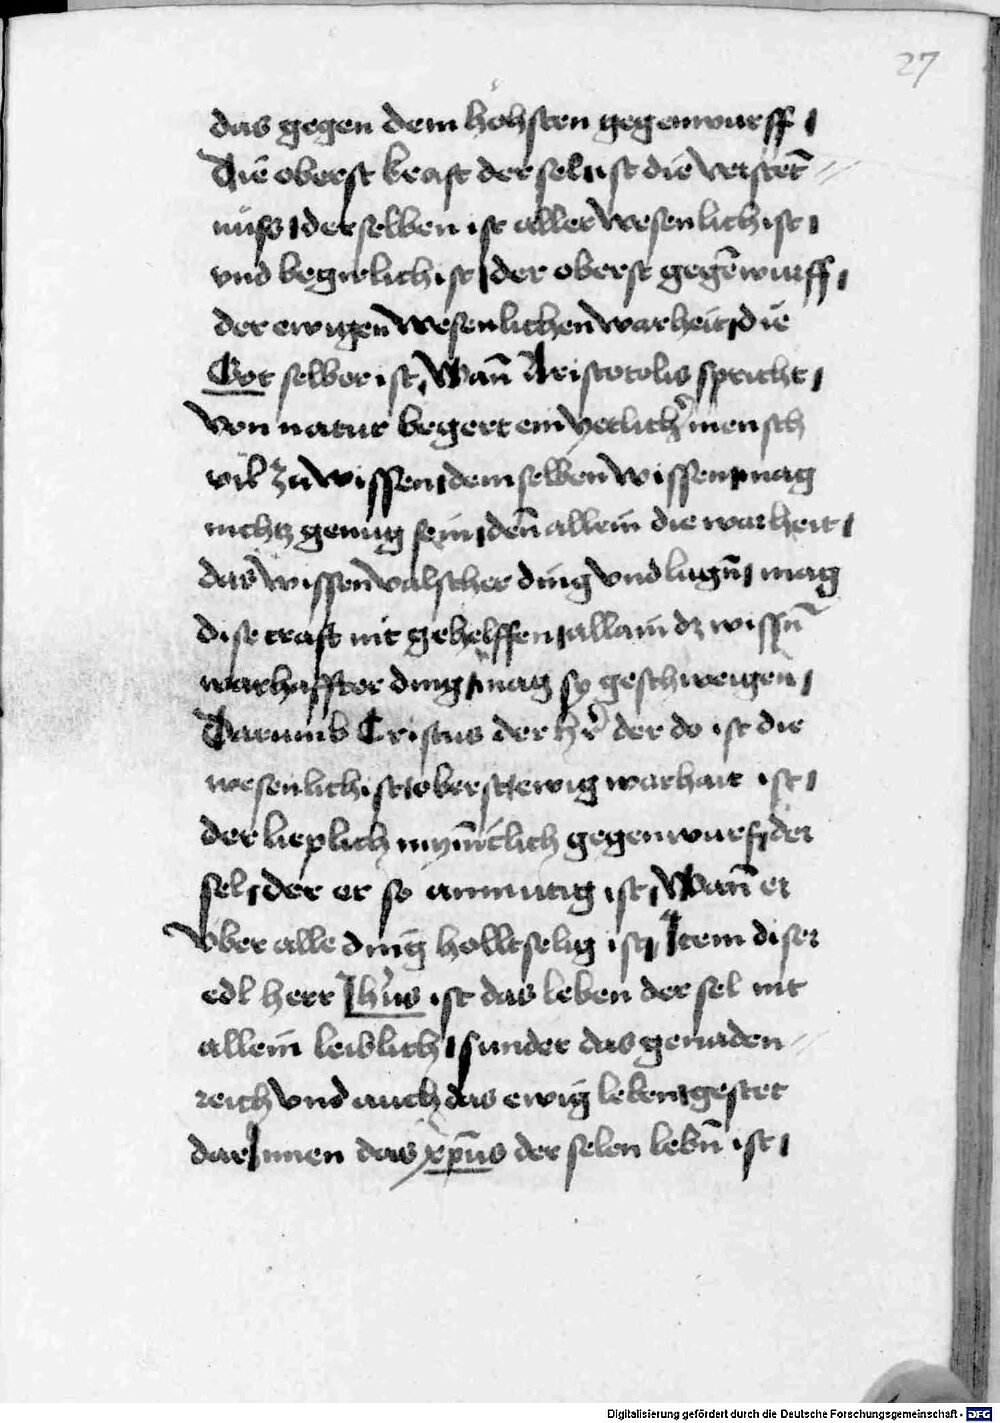 27
das gegen dem höhsten gegenwurff /
Die oberst kraft der sel / ist die verstēt=
nüss / derselben ist aller wesenlichist /
vnd begirlichist / der oberst gegēwurff /
der ewigen wesenlichen warheit / die
Got selber ist / Wan̄ Aristotolis spricht /
Von natur begert ein yetlichʼ mensch
vil zu wissen / dem selben wissen / mag
nichtz genug sein / den̄ allein die warheit /
das wissen valscher ding vnd lugn̄ / mag
dise craft nit gehelffen / allain dz wissn̄
warhaffter ding / mag sy geschweigen /
Darumb Cristus der hʼr der do ist die
wesenlichist / oberst / ewig warhait ist /
der lieplich mȳniclich gegenwurf / der
sel / der er so anmutig ist / Wan̄ er
vber alle ding holltselig ist / Item diser
edl herr Jhʼus ist das leben der sel nit
allein leiblich / sunder das genaden=
reich vnd auch das ewig leben / gestet
dar Innen das xp̄us der selen lebn̄ ist /
Digitalisierung gefördert durch die Deutsche Forschungsgemeinschaft - DFG